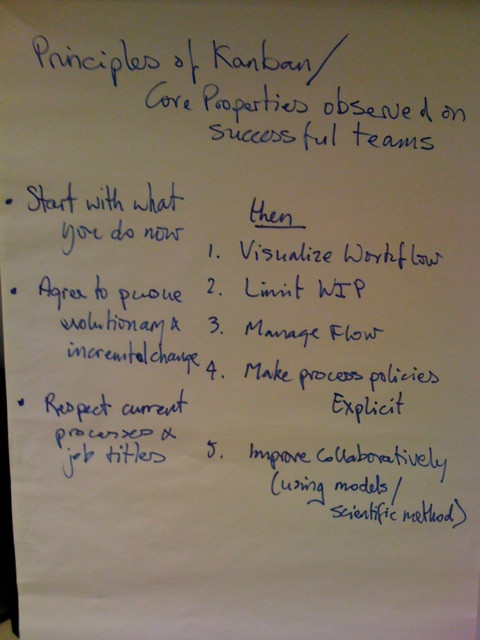 Principles of Kanban/
Core Properties observed on
successful teams
• Start with what
you do now
• Agree to pursue
evolutionary &
incremental change
• Respect current
processes &
job titles
then
1. Visualize Workflow
2. Limit WIP
3. Manage Flow
4. Make process policies
Explicit
5. Improve Collaboratively
(using models/
scientific method)